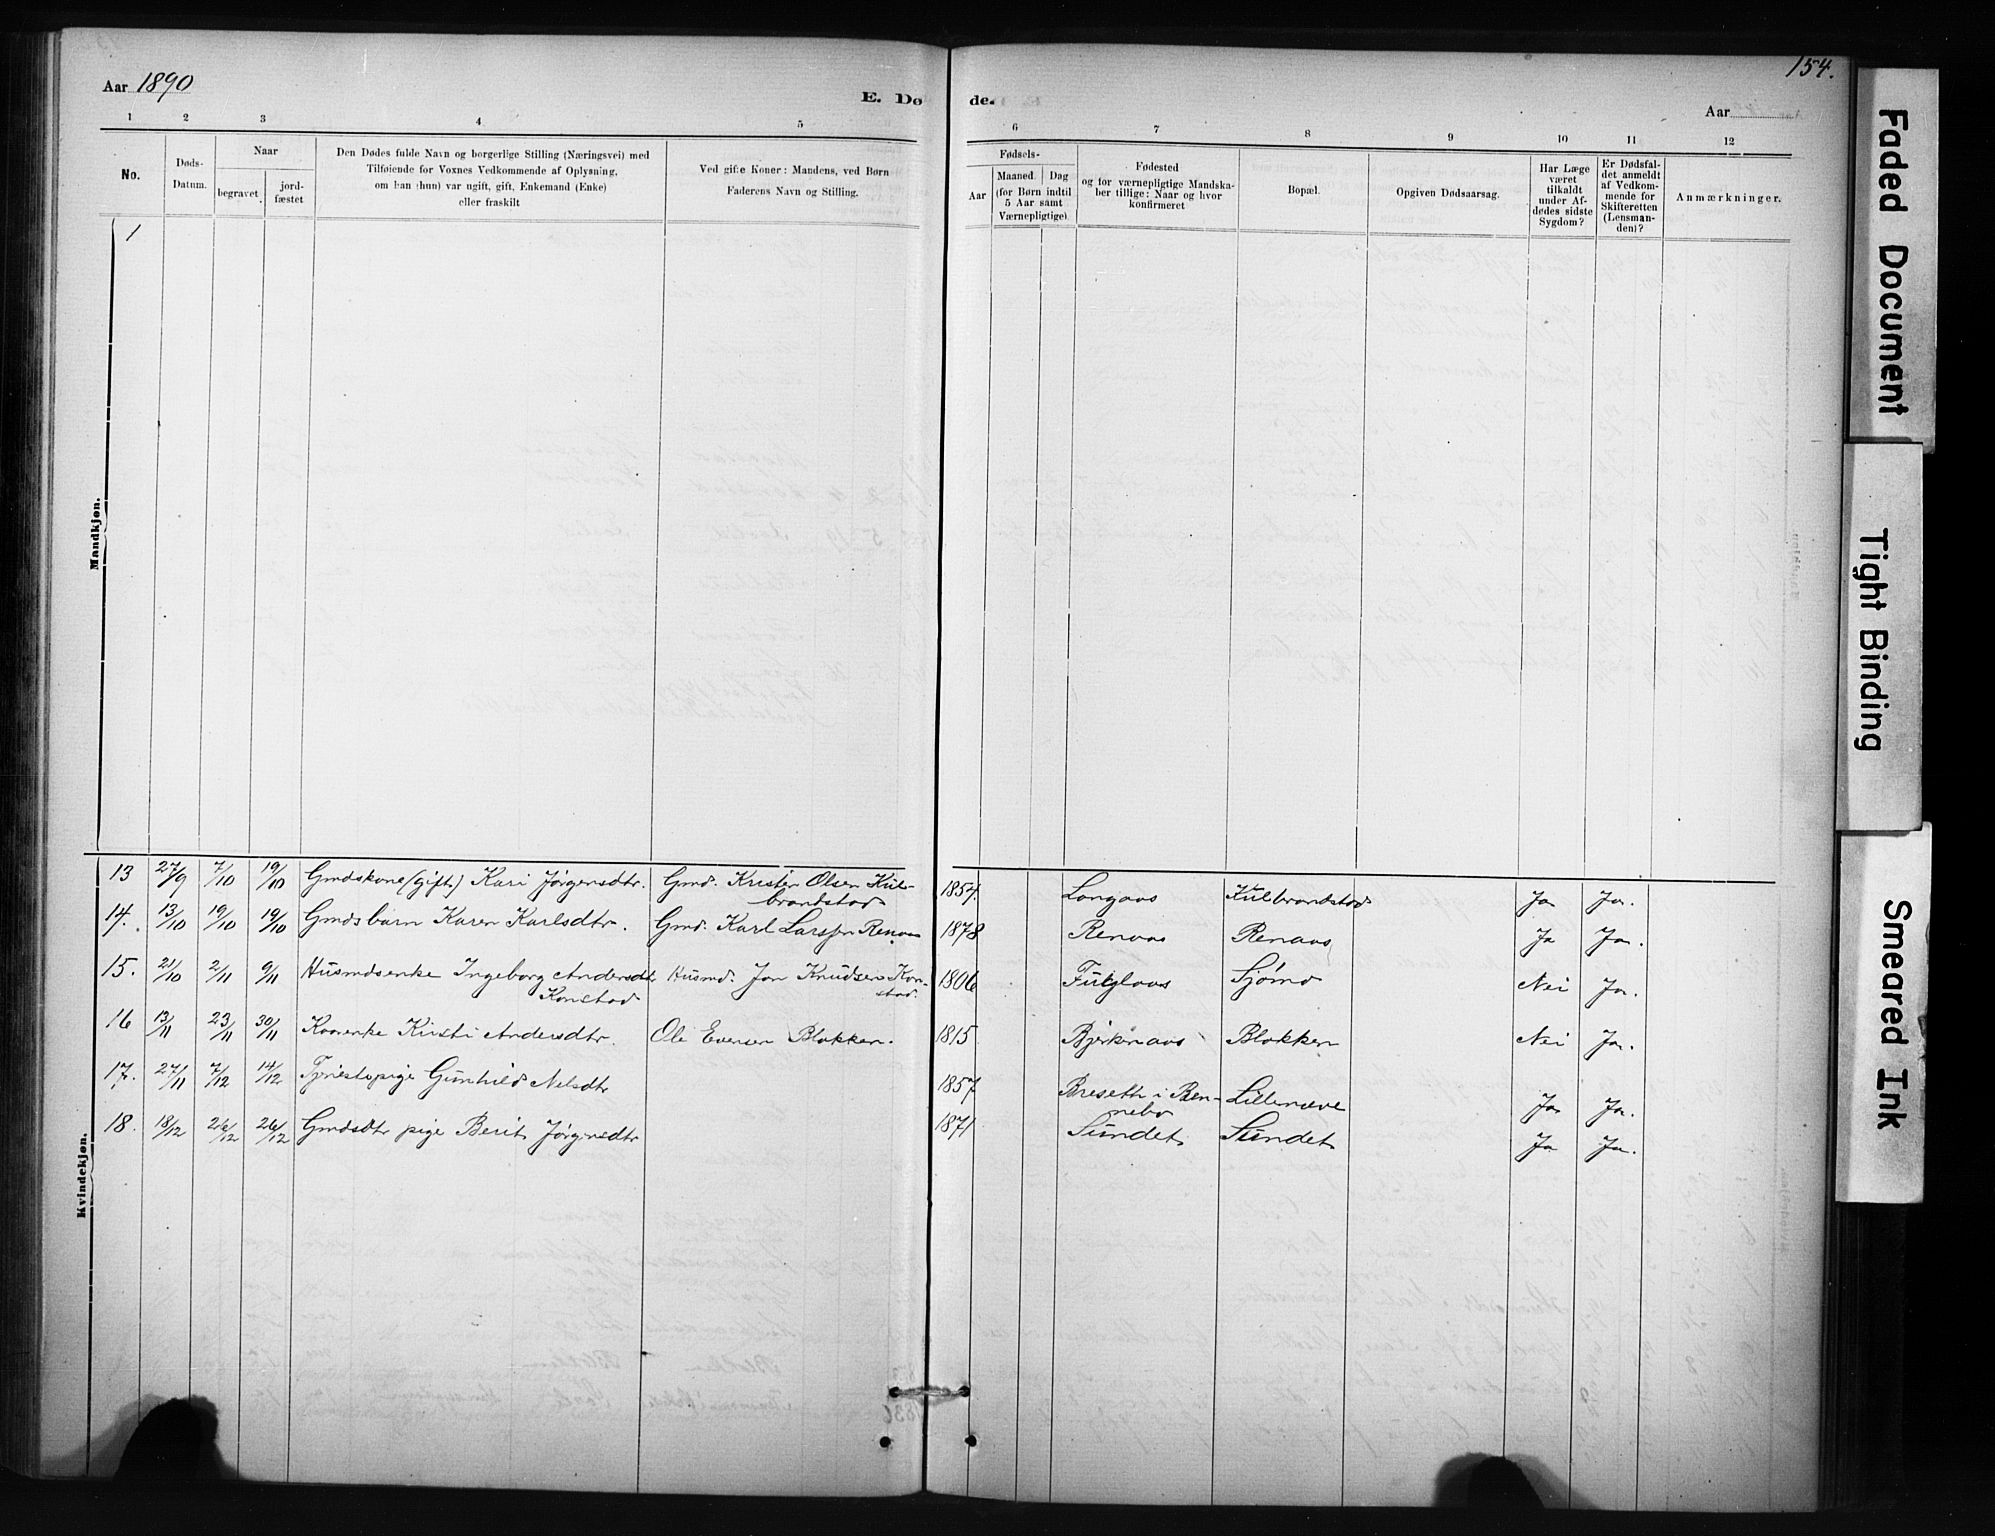 154.
Aar 1890
E. Døde.
Aar
1 2 3 4 5 6 7 8 9 10 11 12
No.
Døds-
Datum.
Naar
begravet.
jord-
fæstet
Den Dødes fulde Navn og borgerlige Stilling (Næringsvei) med
Tilføiende for Voxnes Vedkommende af Oplysning,
om han (hun) var ugift, gift, Enkemand (Enke)
eller fraskilt
Ved gifte Koner: Mandens, ved Børn
Faderens Navn og Stilling.
Fødsels-
Aar
Maaned. Dag
(for Børn indtil
5 Aar samt
Værnepligtige)
Fødested
og for værnepligtige Mandska-
ber tillige: Naar og hvor
konfirmeret
Bopæl.
Opgiven Dødsaarsag.
Har Læge
været
tilkaldt
under Af-
dødes sidste
Sygdom?
Er Dødsfal-
det anmeldt
af Vedkom-
mende for
Skifteretten
(Lensman-
den)?
Anmærkninger.
1
Mandkjøn.
Kvindekjøn.
13 27/9 7/10 19/10 Gmdskone (gift) Kari Jørgensdtr. Gmd. Kristen Olsen Kul-
brandstad 1857. Langaas Kulbrandstad Ja Ja.
14. 13/10 19/10 19/10 Gmdsbarn Karen Karlsdtr. Gmd. Karl Larssen Renaas 1878 Renaas Renaas Ja Ja.
15. 21/10 2/11 9/11 Husmdsenke Ingeborg Andersdtr Husmd. Jon Knudsen Kon-
Konstad stad. 1806 Fuglaas Sjømo Nei Ja.
16 13/11 23/11 30/11 Kaarenke Kirsti Andersdtr. Ole Evensen Blokken. 1815 Bjerkenaas Blokken Nei Ja.
17. 27/11 7/12 14/12 Tjenestepige Gunhild Nelsdtr 1857 Bresetth i Ren-
nebo Lillenæve Ja Ja.
18. 18/12 26/12 26/12 Gmdsdtr pige Berit Jørgensdtr 1871 Sundet Sundet Ja Ja.
Faded Document
Tight Binding
Smeared Ink